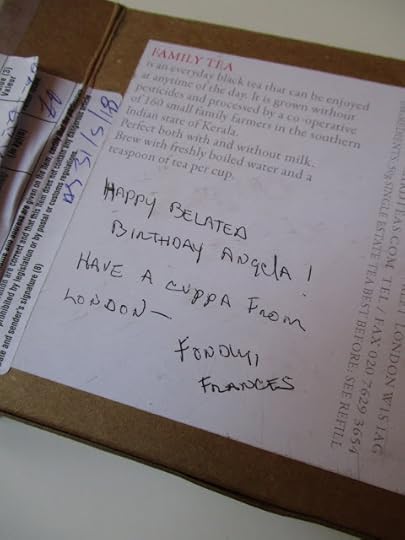 FAMILY TEA
is an everyday black tea that can be enjoyed
at anytime of the day. It is grown without
pesticides and processed by a co-operative
of 160 small family farmers in the southern
Indian state of Kerala.
Perfect both with and without milk.
Brew with freshly boiled water and a
teaspoon of tea per cup.
HAPPY BELATED
BIRTHDAY ANGELA!
HAVE A CUPPA FROM
LONDON—
FONDLY,
FRANCES
SINGLE ESTATE TEA BEST BEFORE: SEE REFILL
TEL / FAX 020 7629 3654
LONDON W1S 1AG
31/5/18
and sender's signature (8)